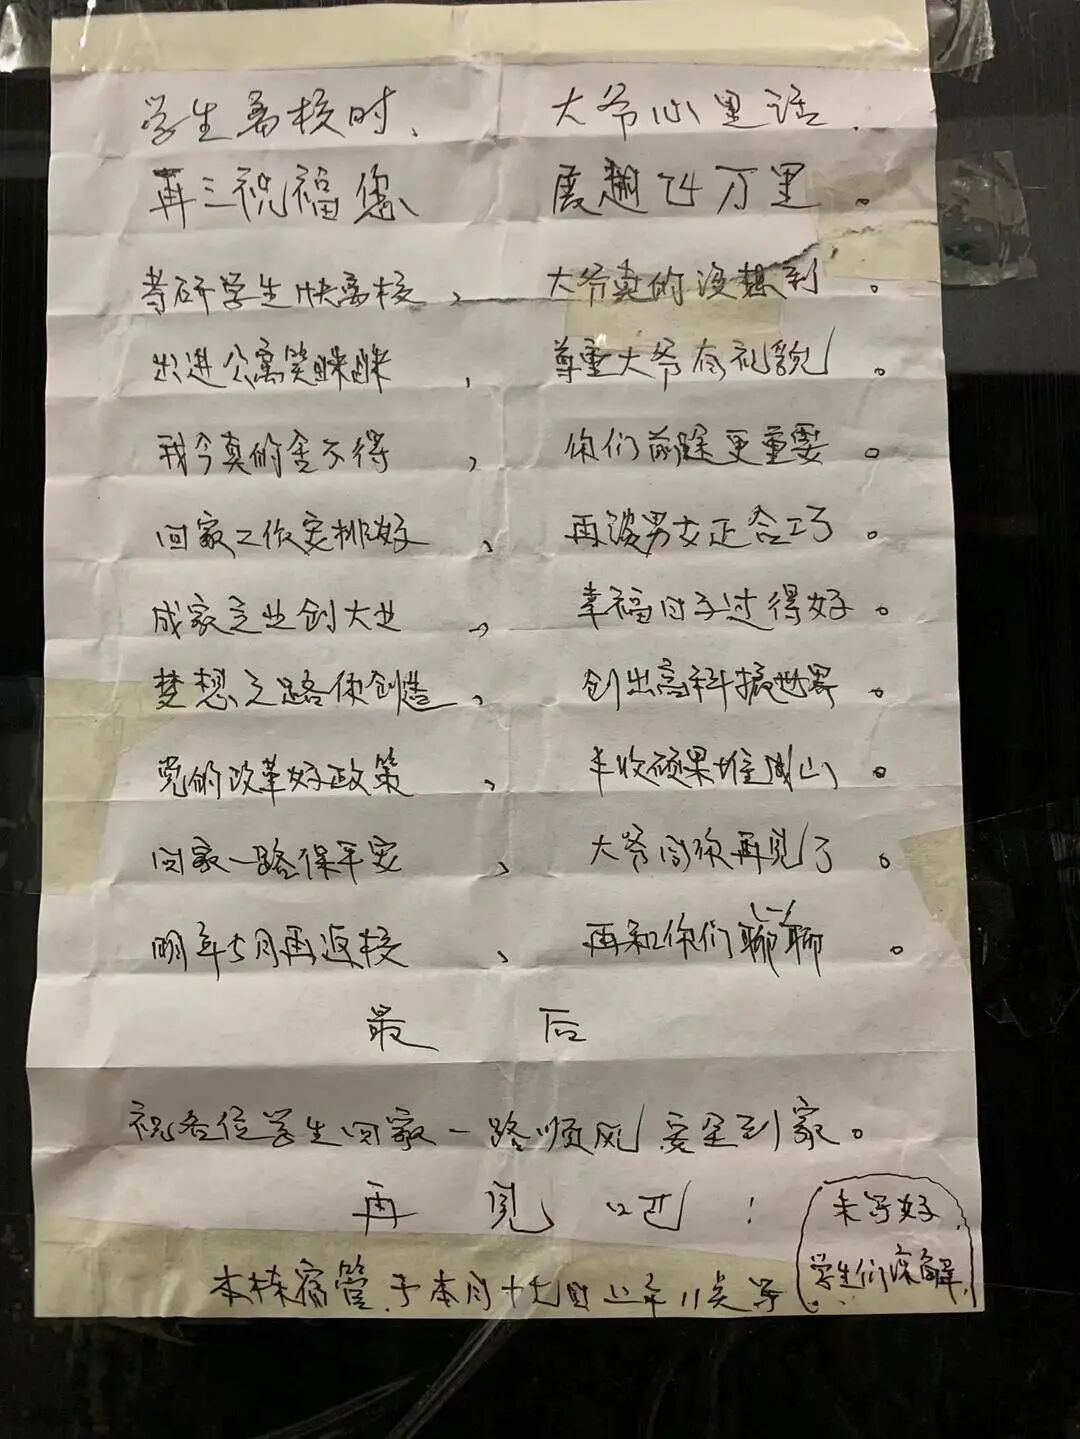 学生离校时、 大爷心里话.
再三祝福您 展翅飞万里。
考研学生快离校, 大爷真的没想到。
出进公寓笑眯眯, 尊重大爷有礼貌。
我今真的舍不得, 你们前途更重要。
回家工作安排好、 再谈男女正合巧。
成家立业创大业、 幸福日子过得好。
梦想之路你创造, 创出高科振世界。
党的改革好政策、 丰收硕果堆成山。
回家一路保平安、 大爷同你再见了。
明年5月再返校、 再和你们聊聊。
最后
祝各位学生回家一路顺风安全到家。
再见吧!
未写好
学生们谅解
本栋宿管于本月十七日上午11点写